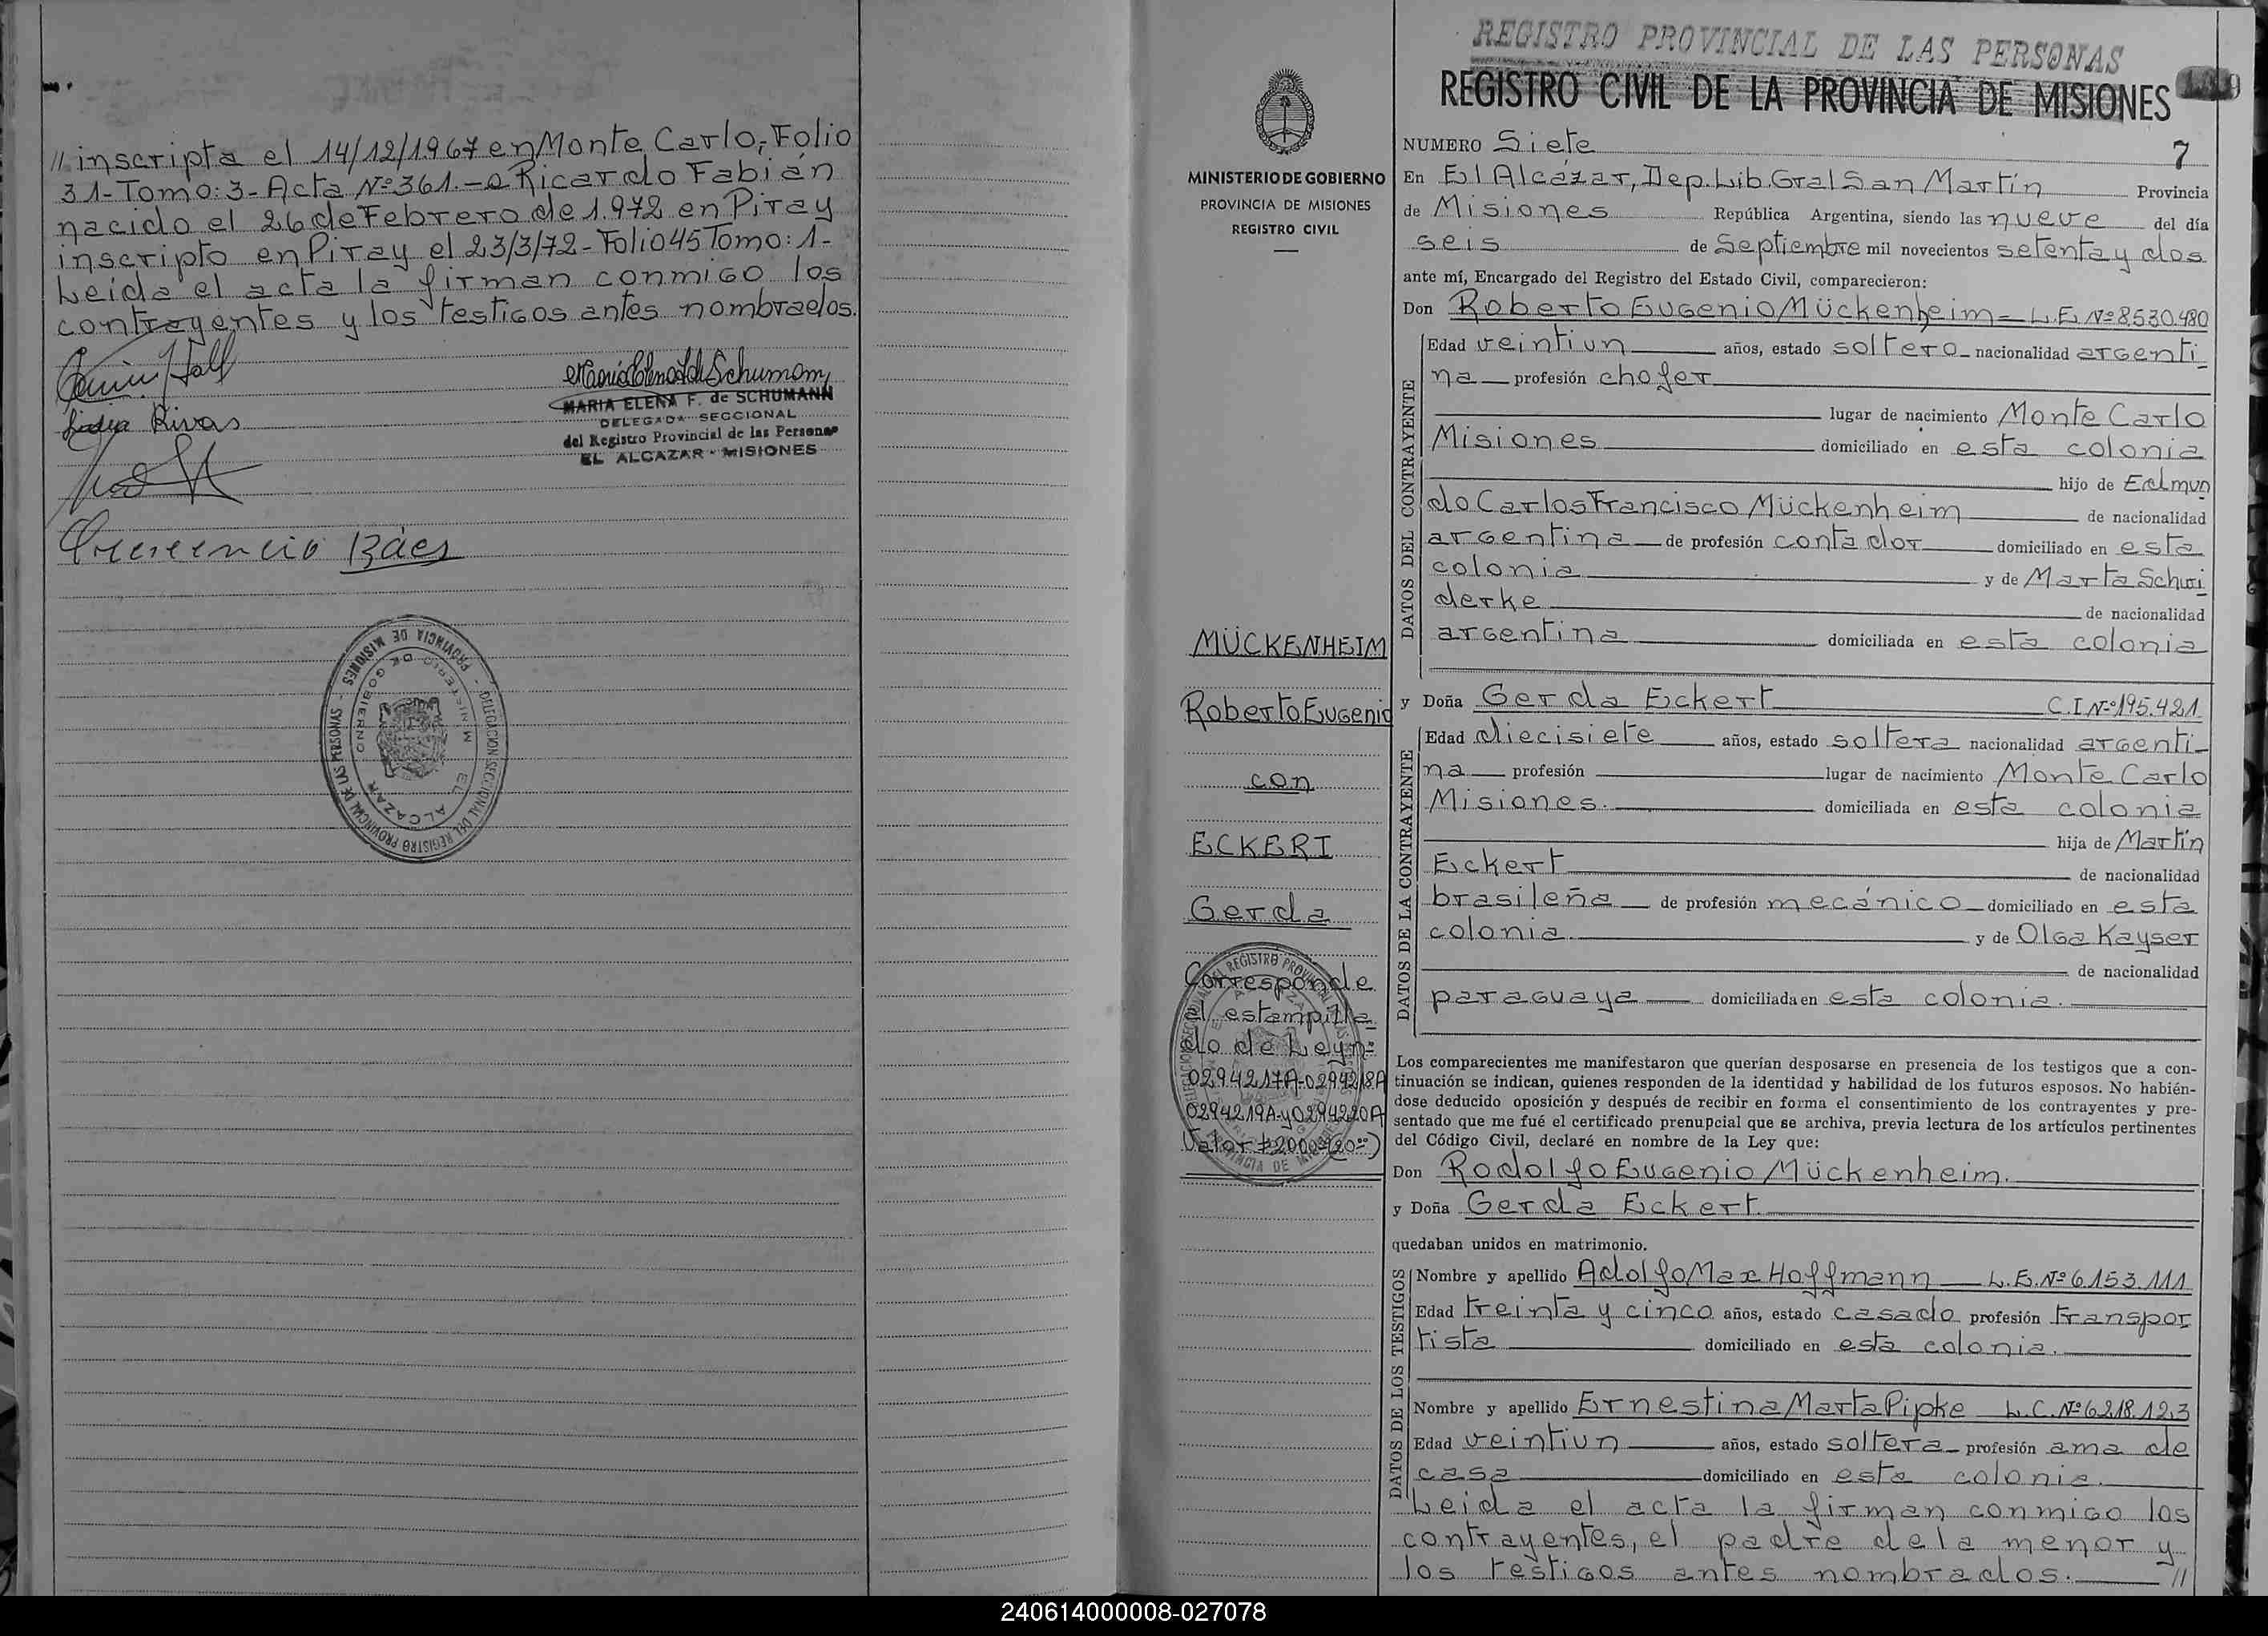 // inscripta el 14/12/1967 en Monte Carlo, Folio
31-Tomo:3-Acta Nº361.-a Ricardo Fabián
nacido el 26 de Febrero de 1.972 en Piray
inscripto en Piray el 23/3/72-Folio 45 Tomo:1-
Leida el acta la firman conmigo los
contrayentes y los testigos antes nombrados.
MARIA ELENA F. de SCHUMANN
DELEGADA SECCIONAL
del Registro Provincial de las Personas
EL ALCAZAR - MISIONES
Rivas
Báes
PROVINCIA DE MISIONES - DELEGACION SECCIONAL DEL REGISTRO PROVINCIAL DE LAS PERSONAS -
MINISTERIO DE GOBIERNO
EL ALCAZAR
REGISTRO PROVINCIAL DE LAS PERSONAS
REGISTRO CIVIL DE LA PROVINCIA DE MISIONES
MINISTERIO DE GOBIERNO
PROVINCIA DE MISIONES
REGISTRO CIVIL
MÜCKENHEIM
Roberto Eugenio
con
ECKERT
Gerda
Corresponde
el estampilla
do de Ley nº
0294217A-0294218A
0294219A y 0294220A
NUMERO Siete 7
En El Alcázar, Dep. Lib. Gral San Martín Provincia
de Misiones República Argentina, siendo las nueve del día
seis de Septiembre mil novecientos setenta y dos
ante mí, Encargado del Registro del Estado Civil, comparecieron:
Don Roberto Eugenio Mückenheim - L.E. Nº 8.530.480
DATOS DEL CONTRAYENTE
Edad veintiun años, estado soltero nacionalidad argenti
na profesión chofer
lugar de nacimiento Monte Carlo
Misiones domiciliado en esta colonia
hijo de Edmun
do Carlos Francisco Mückenheim de nacionalidad
argentina de profesión contador domiciliado en esta
colonia y de Marta Schwi
derke de nacionalidad
argentina domiciliada en esta colonia
y Doña Gerda Eckert C.I. Nº 195.421
DATOS DE LA CONTRAYENTE
Edad diecisiete años, estado soltera nacionalidad argenti-
na profesión lugar de nacimiento Monte Carlo
Misiones. domiciliada en esta colonia
hija de Martín
Eckert de nacionalidad
brasileña de profesión mecánico domiciliado en esta
colonia. y de Olga Kayser
de nacionalidad
paraguaya domiciliada en esta colonia.
Los comparecientes me manifestaron que querían desposarse en presencia de los testigos que a con-
tinuación se indican, quienes responden de la identidad y habilidad de los futuros esposos. No habién-
dose deducido oposición y después de recibir en forma el consentimiento de los contrayentes y pre-
sentado que me fué el certificado prenupcial que se archiva, previa lectura de los artículos pertinentes
del Código Civil, declaré en nombre de la Ley que:
Don Rodolfo Eugenio Mückenheim.
y Doña Gerda Eckert.
quedaban unidos en matrimonio.
DATOS DE LOS TESTIGOS
Nombre y apellido Adolfo Max Hoffmann L.E. Nº 6.153.111
Edad treinta y cinco años, estado casado profesión transpor
tista domiciliado en esta colonia.
Nombre y apellido Ernestina Marta Pipke L.C. Nº 6.218.123
Edad veintiun años, estado soltera profesión ama de
casa domiciliado en esta colonia.
Leida el acta la firman conmigo los
contrayentes, el padre de la menor y
los testigos antes nombrados. //
240614000008-027078